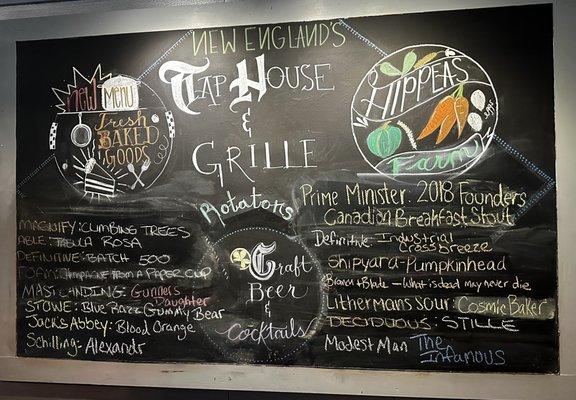 NEW ENGLAND'S
TAP HOUSE
&
GRILLE
Rotators
new MENU
Fresh
BAKED
GOODS
HIPPEAS
Farm
MAGNIFY: CLIMBING TREES
ABLE: TABULA ROSA
DEFINITIVE: BATCH 500
FOAM: CHAMPAGNE FROM A PAPER CUP
MAST LANDING: Gunners
Daughter
STOWE: Blue Razz Gummy Bear
Jack's Abbey: Blood Orange
Schilling: Alexandr
Craft
Beer
&
Cocktails
Prime Minister: 2018 Founders
Canadian Breakfast Stout
Definitive: Industrial
Grass Breeze
Shipyard-Pumpkinhead
Branch + Blade - What is dead may never die
Lithermans Sour: Cosmic Baker
DECIDUOUS: STILLE
Modest Man The
Infamous